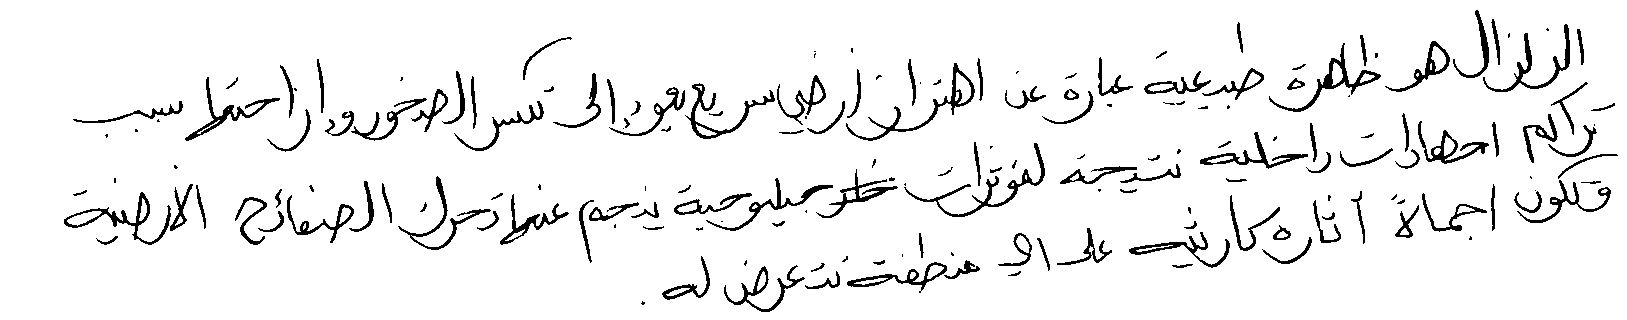 الزلزال هو ظاهرة طبيعية عبارة عن اهتزاز أرضي سريع يعود إلى تكسر الصخور وإزاحتها بسبب
تراكم اجهادات داخلية نتيجة لمؤثرات جيولوجية ينجم عنها تحرك الصفائح الأرضية
وتكون اجمالاً آثاره كارثية على اي منطقة تتعرض له .